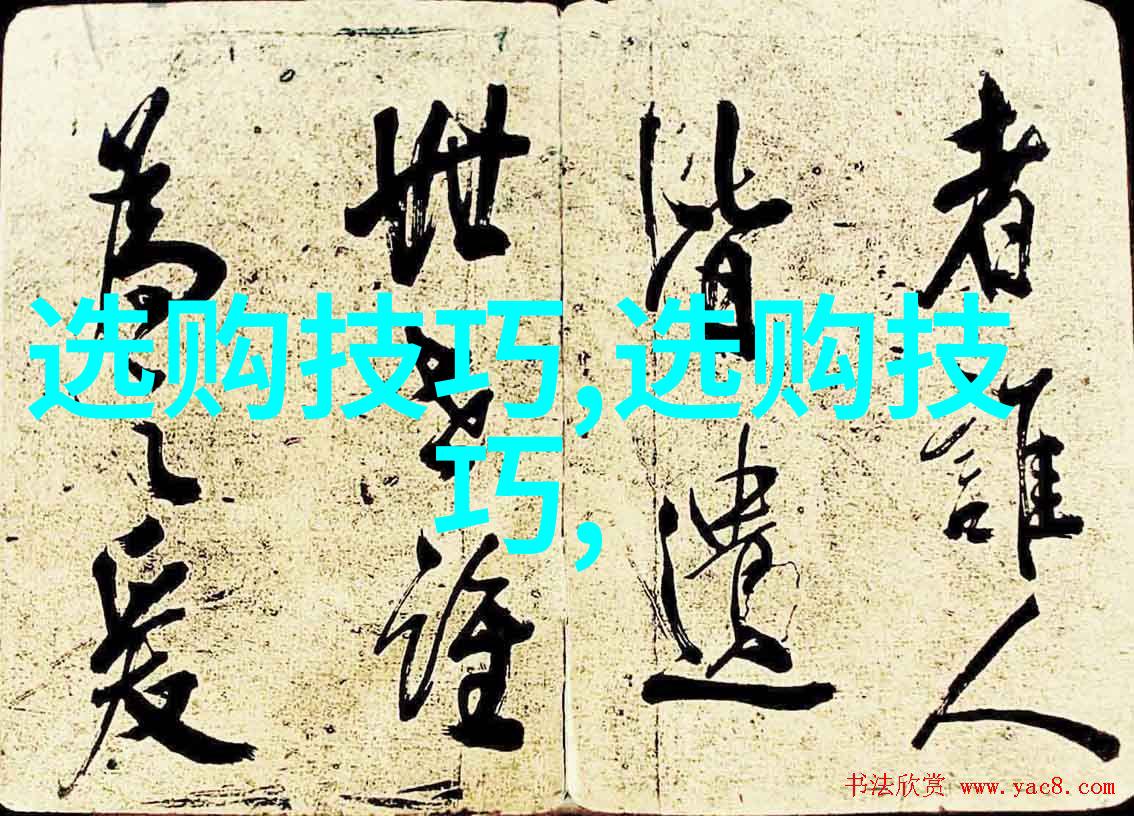 者誰人
皆遺
世誰
為之
选购技巧,选购技
巧,
书法欣赏 www.yac8.com